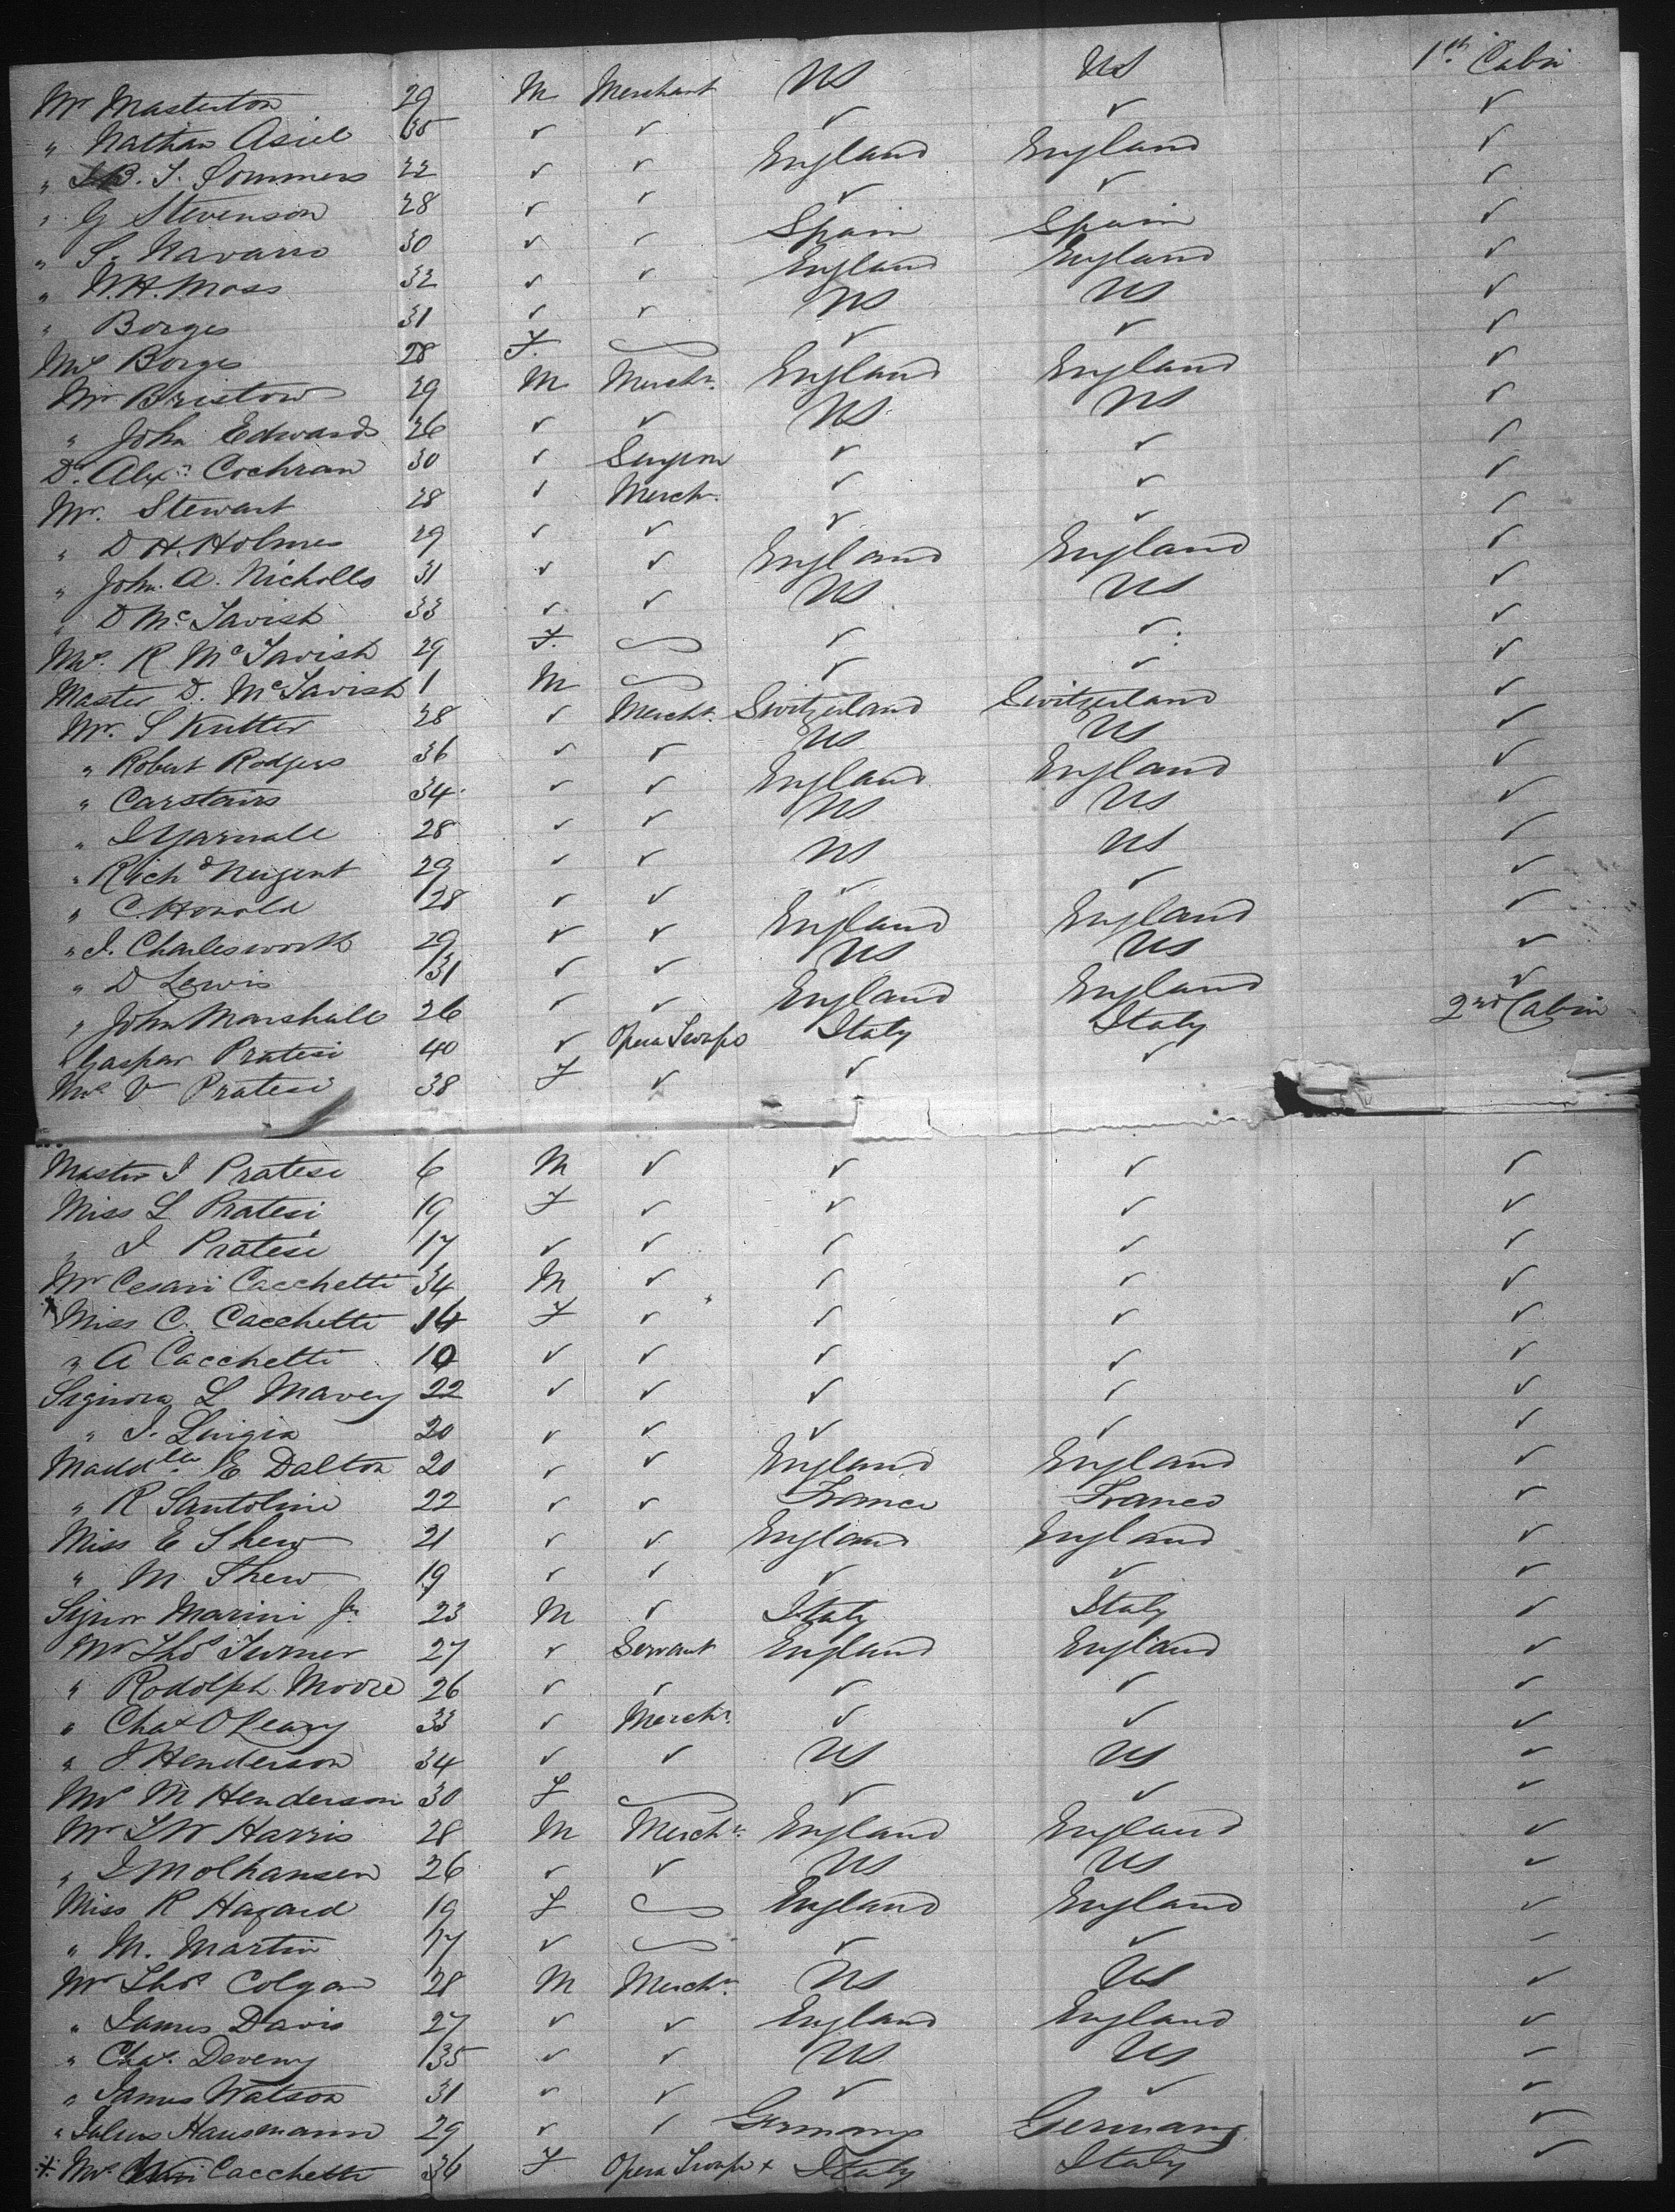 1st Cabin
Mr Masterton 29 M Merchant US US
" Nathan Asiel 35 ✓ ✓ ✓ ✓ ✓
" B. J. Sommers 22 ✓ ✓ England England ✓
" G Stevenson 28 ✓ ✓ ✓ ✓ ✓
" S. Navarro 30 ✓ ✓ Spain Spain ✓
" H. Moss 32 ✓ ✓ England England ✓
" Borges 31 ✓ ✓ US US ✓
Mrs Borges 28 F. ✓ ✓ ✓
Mr Bristow 29 M Mercht. England England ✓
" John Edwards 26 ✓ ✓ US US ✓
Dr. Alexr. Cochran 30 ✓ Surgeon ✓ ✓ ✓
Mr. Stewart 28 ✓ Mercht. ✓ ✓ ✓
" D H. Holmes 29 ✓ ✓ ✓ ✓ ✓
" John. A. Nicholls 31 ✓ ✓ England England ✓
" D McTavish 33 ✓ ✓ US US ✓
Mrs. R McTavish 29 F. ✓ ✓ ✓
Master D. McTavish 1 M ✓ ✓ ✓
Mr. S Kutter 28 ✓ Mercht. Switzerland Switzerland ✓
" Robert Rodgers 36 ✓ ✓ US US ✓
" Carstairs 34 ✓ ✓ England England ✓
" Yarnall 28 ✓ ✓ US US ✓
" Richd Nugent 29 ✓ ✓ US US ✓
" C. Honold 28 ✓ ✓ ✓ ✓ ✓
" J. Charlesworth 29 ✓ ✓ England England ✓
" D Lewis 31 ✓ ✓ US US ✓
" John Marshall 26 ✓ ✓ England England ✓
" Gaspar Pratesi 40 ✓ Opera Troupe Italy Italy 2nd Cabin
Mrs V Pratesi 38 F ✓ ✓ ✓
Master J Pratesi 6 M ✓ ✓ ✓ ✓
Miss L Pratesi 19 F ✓ ✓ ✓ ✓
" J Pratesi 17 ✓ ✓ ✓ ✓ ✓
Mr Cesari Cacchetti 34 M ✓ ✓ ✓ ✓
Miss C. Cacchetti 14 F ✓ ✓ ✓ ✓
" A Cacchetti 10 ✓ ✓ ✓ ✓ ✓
Signora L Mavery 22 ✓ ✓ ✓ ✓ ✓
" J. Luigia 20 ✓ ✓ ✓ ✓ ✓
E Dalton 20 ✓ ✓ England England ✓
" R Santolini 22 ✓ ✓ France France ✓
Miss E Shew 21 ✓ ✓ England England ✓
" M Shew 19 ✓ ✓ ✓ ✓ ✓
Signor Marini Jr. 23 M ✓ Italy Italy ✓
Mr Thos Turner 27 ✓ Servant England England ✓
" Rodolph Moore 26 ✓ ✓ ✓ ✓ ✓
" Chas OLeary 33 ✓ Mercht. ✓ ✓ ✓
" J. Henderson 34 ✓ ✓ US US ✓
Mrs M Henderson 30 F ✓ ✓ ✓
Mr Harris 28 M Mercht. England England ✓
" J Molhansen 26 ✓ ✓ US US ✓
Miss R Hazard 19 F England England ✓
" M. Martin 17 ✓ ✓ ✓ ✓
Mr Thos Colgan 28 M Mercht. US US ✓
" James Davis 27 ✓ ✓ England England ✓
" Chas. Deveny 35 ✓ ✓ US US ✓
" James Watson 31 ✓ ✓ ✓ ✓ ✓
" Julius Hausmann 29 ✓ ✓ Germany Germany ✓
* Mrs Cacchetti 36 F Opera Troupe x Italy Italy ✓